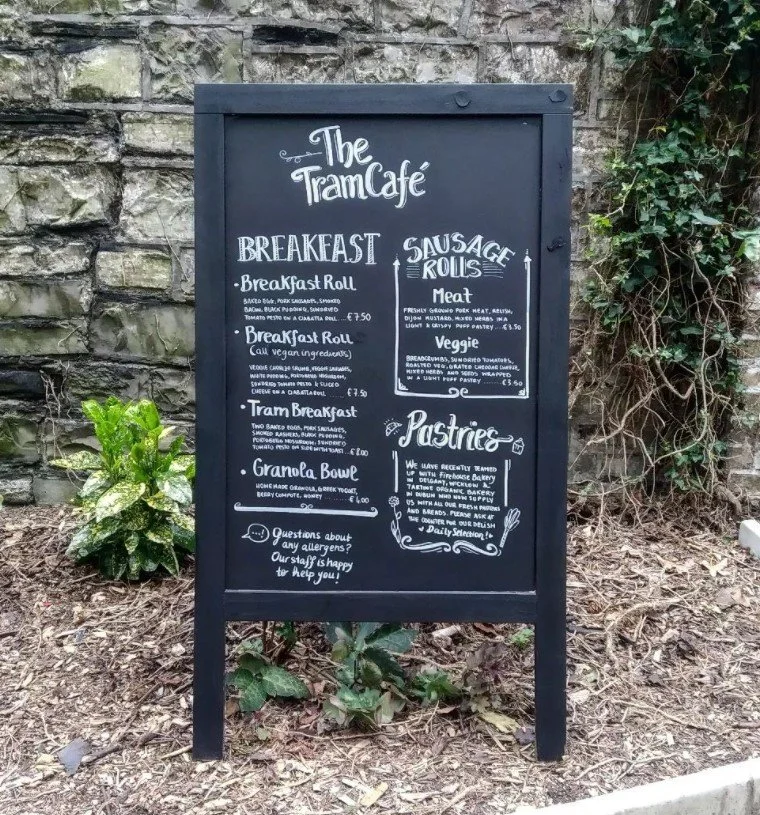 The
TramCafé
BREAKFAST
• Breakfast Roll
BAKED EGG, PORK SAUSAGES, SMOKED
BACON, BLACK PUDDING, SUNDRIED
TOMATO PESTO ON A CIABATTA ROLL ....€7.50
• Breakfast Roll
(all vegan ingredients)
VEGGIE SAUSAGES,
WHITE PUDDING, PORTOBELLO MUSHROOM,
SUNDRIED TOMATO PESTO & SLICED
CHEESE ON A CIABATTA ROLL ...€7.50
• Tram Breakfast
TWO BAKED EGGS, PORK SAUSAGES,
SMOKED RASHERS, BLACK PUDDING,
PORTOBELLO MUSHROOM, SUNDRIED
TOMATO PESTO ON SIDE WITH TOAST ..€8.00
• Granola Bowl
HOMEMADE GRANOLA, GREEK YOGURT,
BERRY COMPOTE, HONEY ..........€4.00
Questions about
any allergens?
Our staff is happy
to help you!
SAUSAGE
ROLLS
Meat
FRESHLY GROUND PORK MEAT, RELISH,
DIJON MUSTARD, MIXED HERBS IN A
LIGHT & CRISPY PUFF PASTRY ....€3.50
Veggie
BREADCRUMBS, SUNDRIED TOMATOES,
ROASTED VEG, GRATED CHEDDAR CHEESE,
MIXED HERBS AND SEEDS WRAPPED
IN A LIGHT PUFF PASTRY .........€3.50
Pastries
WE HAVE RECENTLY TEAMED
UP WITH FIREHOUSE BAKERY
IN DELGANY, WICKLOW &
TARTINE ORGANIC BAKERY
IN DUBLIN WHO NOW SUPPLY
US WITH ALL OUR FRESH PASTRIES
AND BREADS. PLEASE ASK AT
THE COUNTER FOR OUR DELISH
Daily Selection!